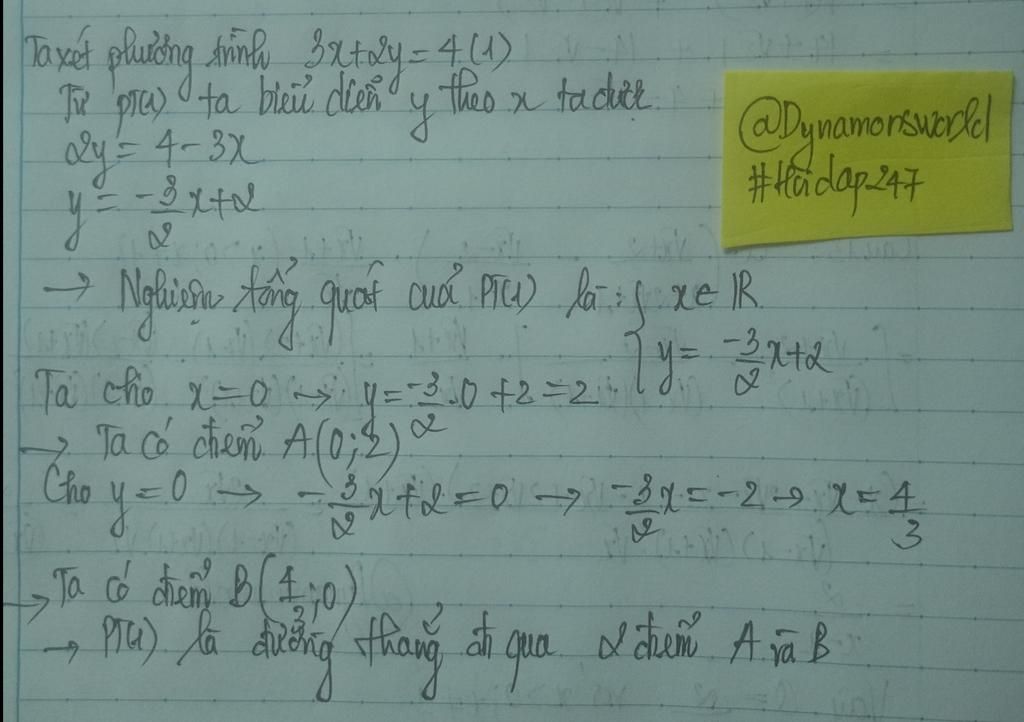 Ta xét phương trình 3x+2y=4 (1)
Từ PT(1) ta biểu diễn y theo x ta được
2y = 4 - 3x
y = -3/2 x + 2
→ Nghiệm tổng quát của PT(1) là : { x ∈ ℝ
{ y = -3/2 x + 2
Ta cho x = 0 → y = -3/2 . 0 + 2 = 2
→ Ta có điểm A(0;2)
Cho y = 0 → -3/2 x + 2 = 0 → -3/2 x = -2 → x = 4/3
→ Ta có điểm B(4/3;0)
→ PT(1) là đường thẳng đi qua 2 điểm A và B
@Dynamonsworld
#Hoidap247